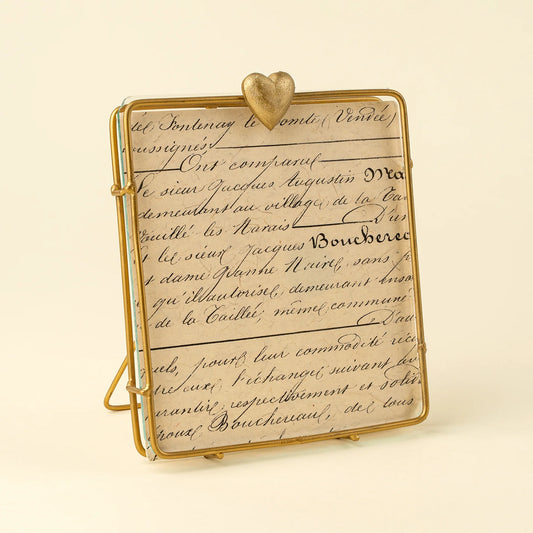 Fontenay le Comte (Vendée)
soussignés
Ont comparu
Le sieur Jacques Augustin Ma
demeurant au village de la Tai
Taillé les Marais D'un
Et le sieur Jacques Bouchere
et dame Jeanne Naire, sans p
qu'il autorise, demeurant ense
de la Taillée, même commune
D'au
quels, pour leur commodité réci
entre eux, l'échange suivant av
garantir respectivement et solid
époux Bouchereau, de tous